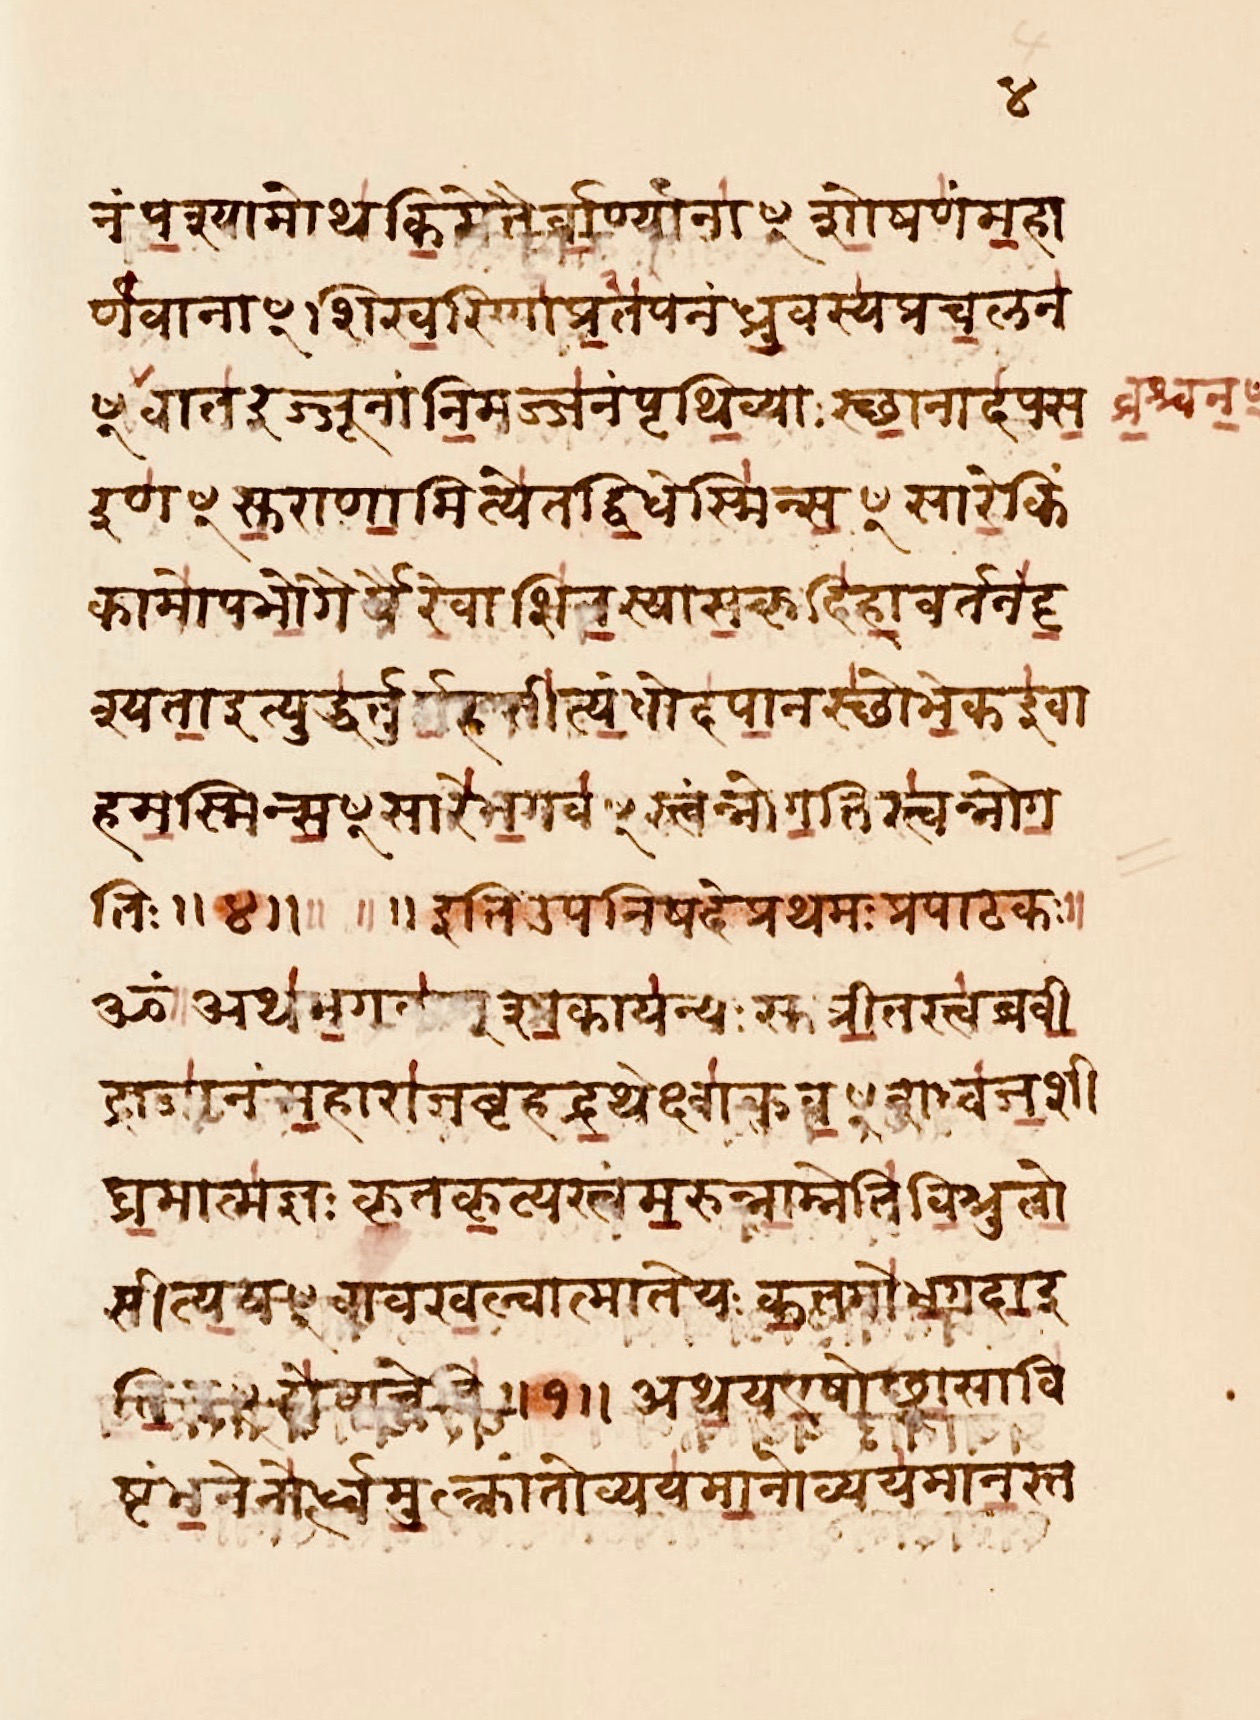 ४
नं पश्यामोथकिमेतैर्वाण्यानाꣳ शोषणंमहा
र्णवानाꣳ।शिखरिणांप्रतपनंध्रुवस्यप्रचलन
ꣳवातरज्जूनांनिमज्जनंपृथिव्याःस्छानादपस व्रश्चनꣳ
रणꣳसुराणामित्येतद्विधेस्मिन्सꣳसारेकिं
कामोपभोगैर्यैरेवाशितस्यासकृदिहावर्तनंदृ
श्यताइत्युद्धर्तुमर्हसीत्यंधोदपानस्छोभेकइवा
हमस्मिन्सꣳसारेभगवꣳस्त्वंन्नोगतिस्त्वन्नोग
तिः॥४॥ ॥इतिउपनिषदेप्रथमःप्रपाठकः॥
ॐ अथभगवान् शाकायन्यःसुप्रीतस्त्वब्रवी
द्राजानंमहाराजबृहद्रथेक्ष्वाकुवꣳशध्वजशी
घ्रमात्मज्ञःकृतकृत्यस्त्वंमरुन्नाम्नेतिविश्रुतो
सीत्ययꣳवावखल्वात्माते यः कतमोभगवा इ
ति ॥१॥ अथयएषोछ्वासावि
ष्टंभनेनोर्ध्वमुत्क्रांतोव्ययमानोव्ययमानस्त